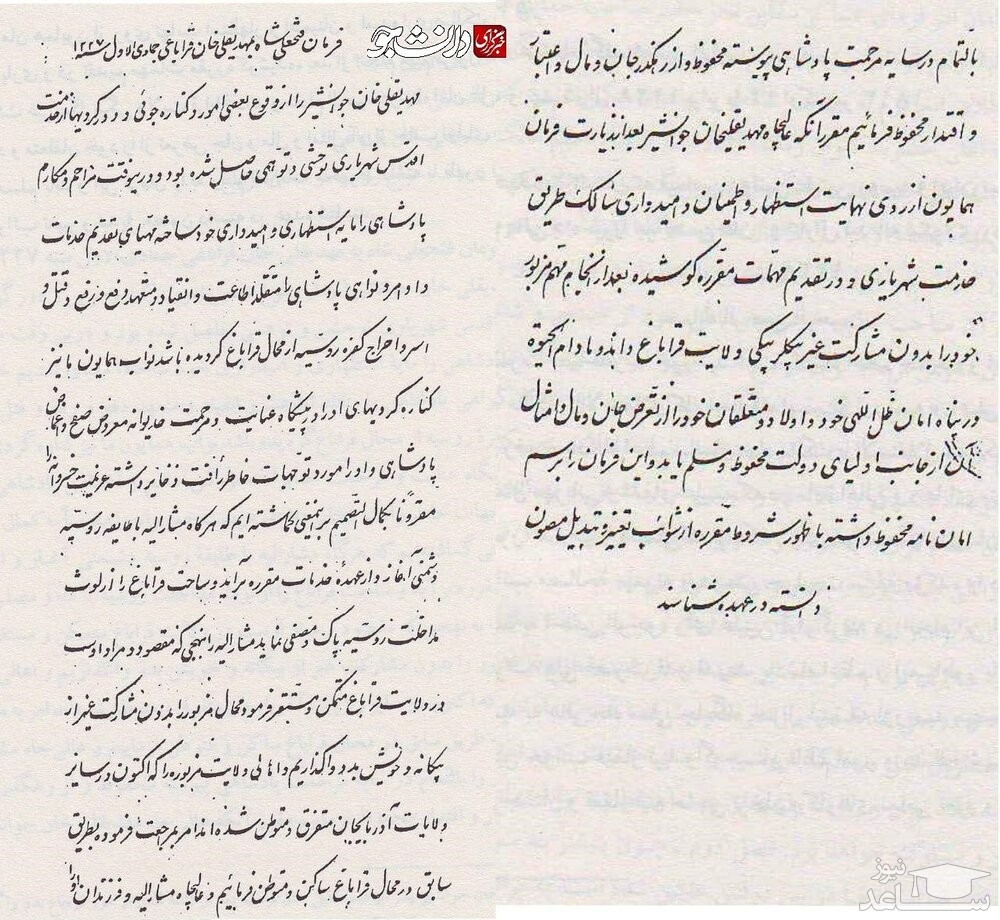 فرمان فتحعلی شاه بمهدیقلی خان قراباغی جمادی الاول سنه ۱۲۲۷
خبرگزاری دانشجو
مهدیقلی خان جوانشیر را از وقوع بعضی امور و کناره جوئی و دور گردیها از خدمت
اقدس شهریاری توحشی و توهمی حاصل شده بود و درینوقت مراحم و مکارم
پادشاهی را مایه استظهاری و امیدواری خود ساخته متمهای تقدیم خدمات
و اوامر و نواهی پادشاهی را متقلد اطاعت و انقیاد و متعهد دفع و رفع و قتل و
اسر و اخراج کفره روسیه از محال قراباغ گردیده باشد نواب همایون ما نیز
کناره گرویهای او را در پیشگاه عنایت و مرحمت خدیوانه معروض صفح و اغماض
پادشاهی و او را مورد توجهات خاطر رأفت ذخایر داشته عزیمت خسروانه را
مقرونا بکمال التصمیم بر اینمعنی گماشته ایم که هرگاه مشارالیه با طایفه روسیه
دشمنی آغاز و از عهده خدمات مقرره برآید و ساحت قراباغ را از لوث
مداخلت روسیه پاک و مصفی نماید مشارالیه را بنهجی که مقصود و مراد اوست
در ولایت قراباغ متمکن و مستقر فرموده محال مزبور را بدون مشارکت غیر از
بیگانه و خویش بدو واگذاریم و اهالی ولایت مزبوره را که اکنون در سایر
ولایات آذربایجان متفرق و متوطن شده اند امر بمراجعت فرموده بطریق
سابق در محال قراباغ ساکن و متوطن فرمائیم و عالیجاه مشارالیه و فرزندان او را
بالتمام در سایه مرحمت پادشاهی پیوسته محفوظ و از رهگذر جان و مال و اعتبار
و اقتدار محفوظ فرمائیم مقرر آنکه عالیجاه مهدیقلیخان جوانشیر بعد از زیارت فرمان
همایون از روی نهایت استظهار و اطمینان و امیدواری سالک طریق
خدمت شهریاری و در تقدیم مهمات مقرره کوشیده بعد از انجام مهم مزبور
خود را بدون مشارکت غیر بیگلربیگی ولایت قراباغ داند و مادام الحیوة
در پناه امان ظل اللهی خود و اولاد و متعلقان خود را از تعرض جان و مال و امثال
آن از جانب اولیای دولت محفوظ و مسلم یابد و این فرمان را برسم
امان نامه محفوظ داشته با ظهور شروط مقرره از شوائب تغییر و تبدیل مصون
دانسته در عهده شناسند
ساعد نیوز